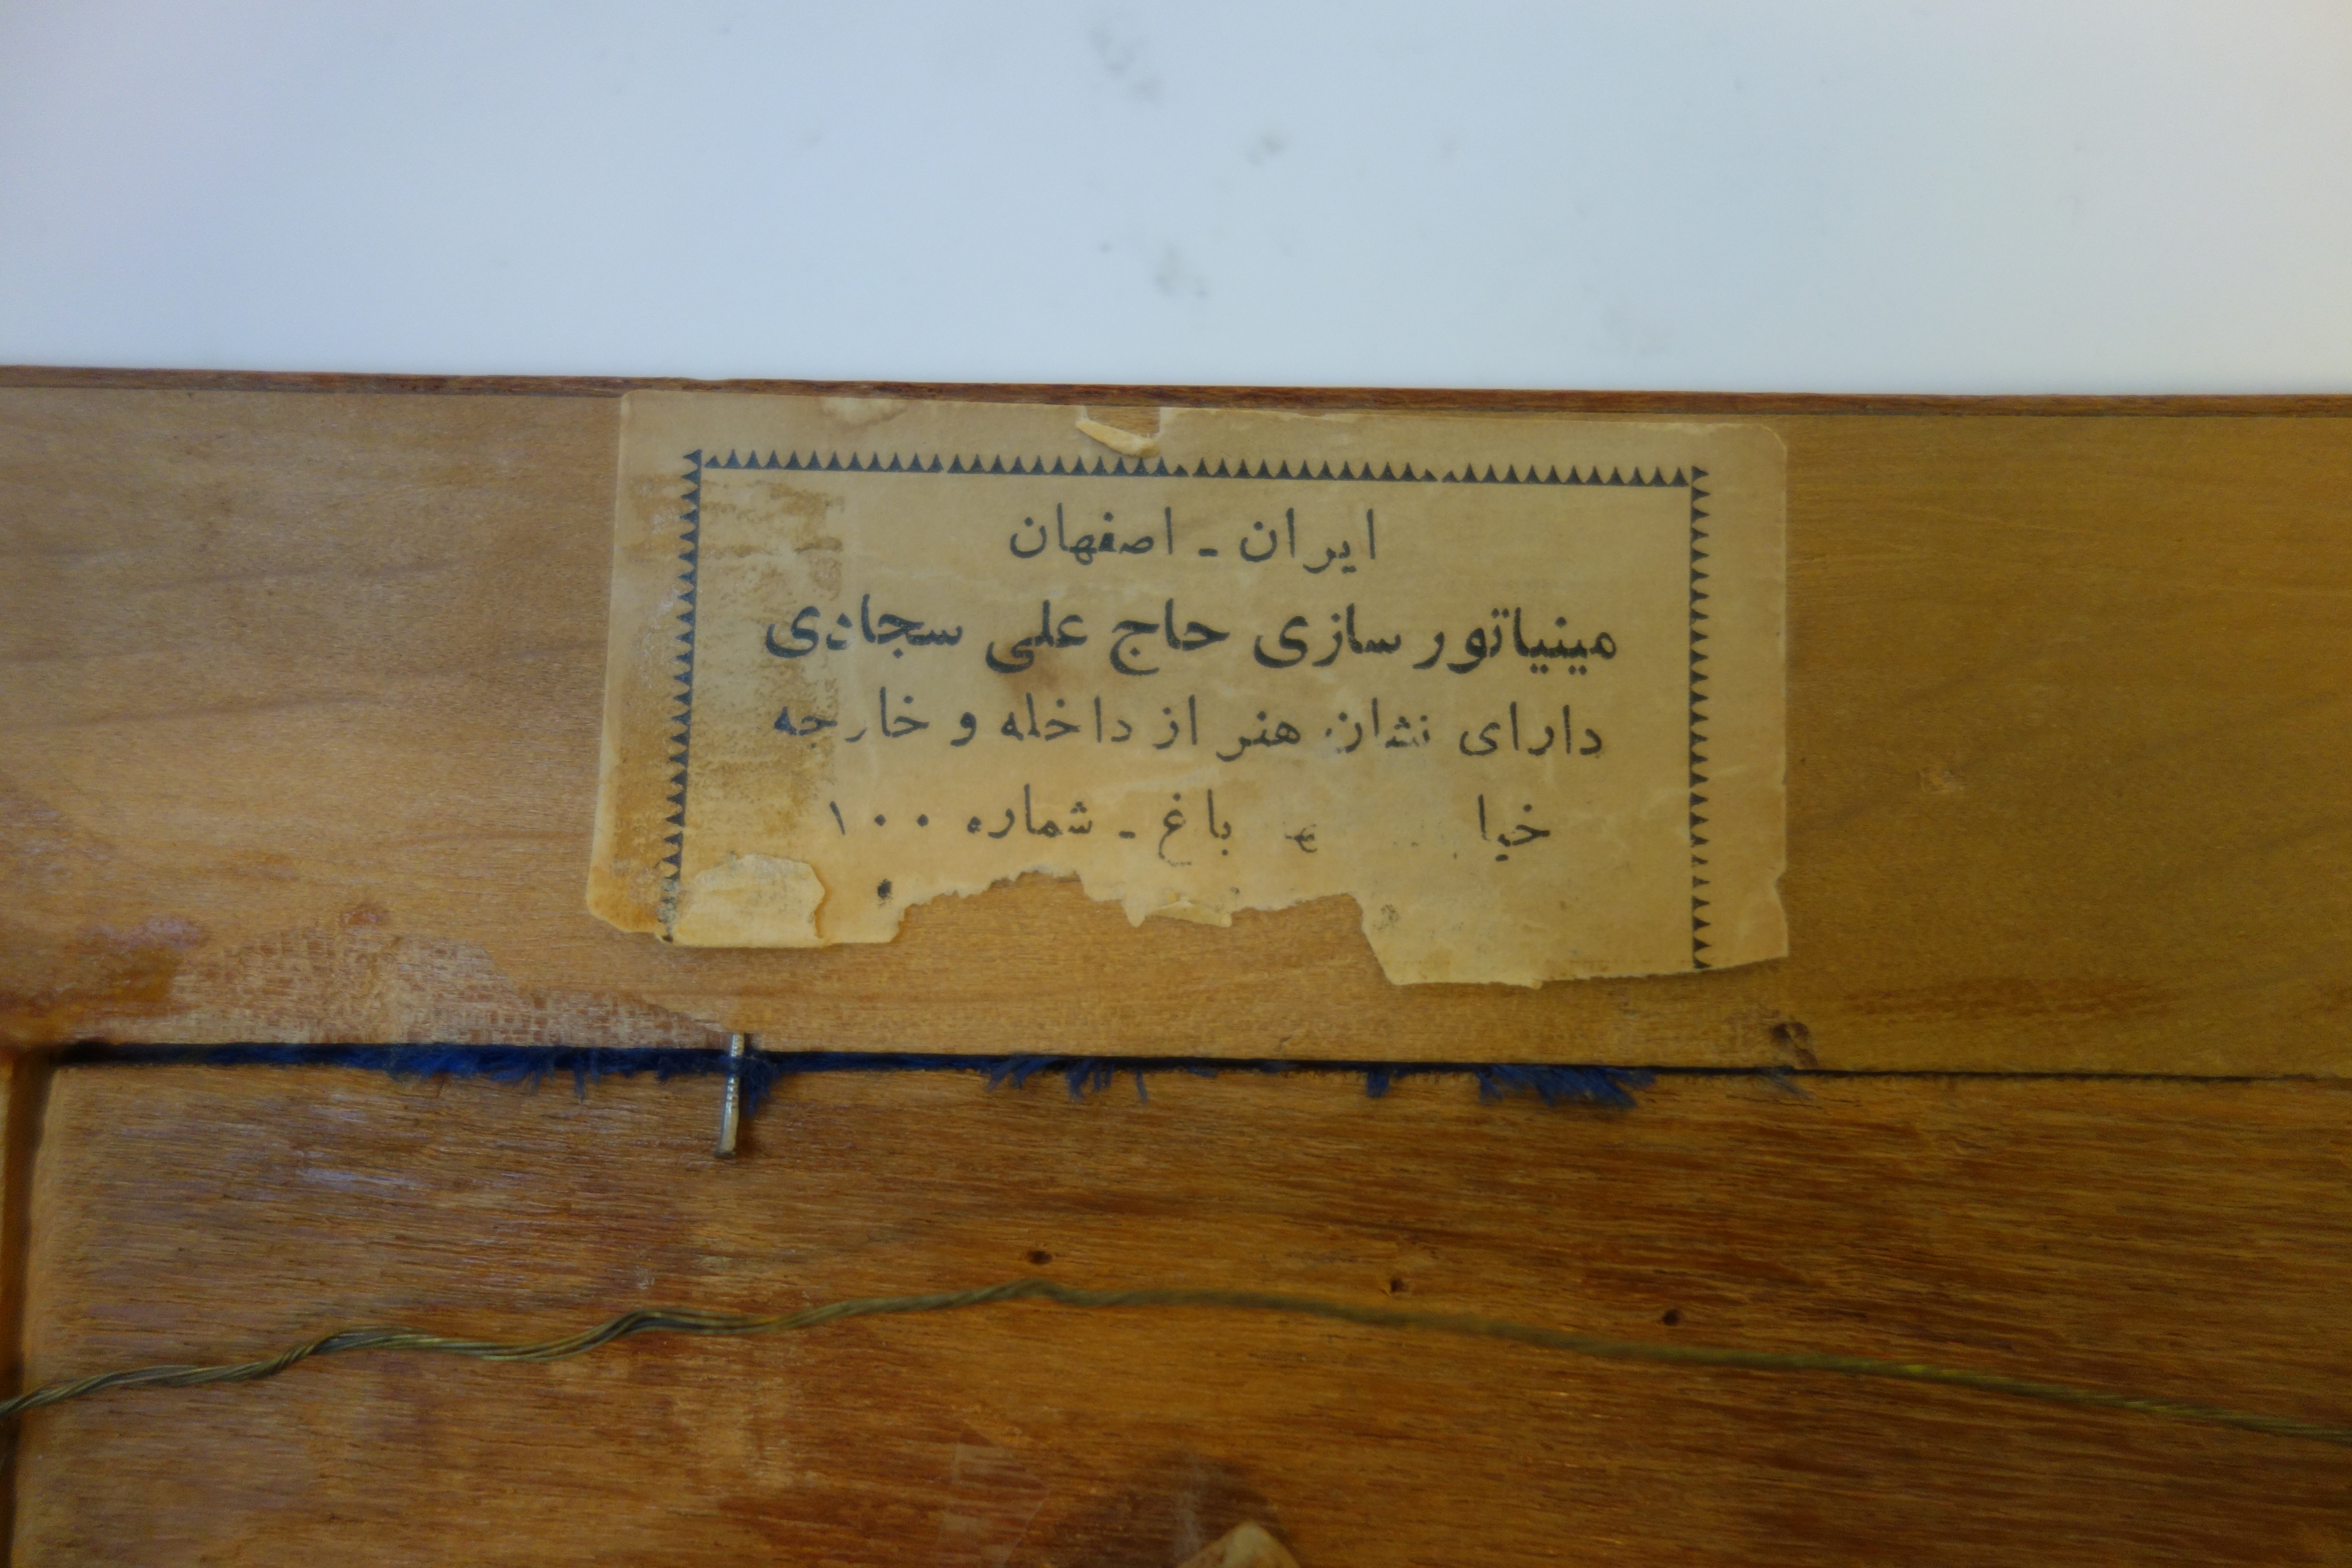 ایران - اصفهان
مینیاتور سازی حاج علی سجادی
دارای نشان هنر از داخله و خارجه
باغ - شماره ۱۰۰